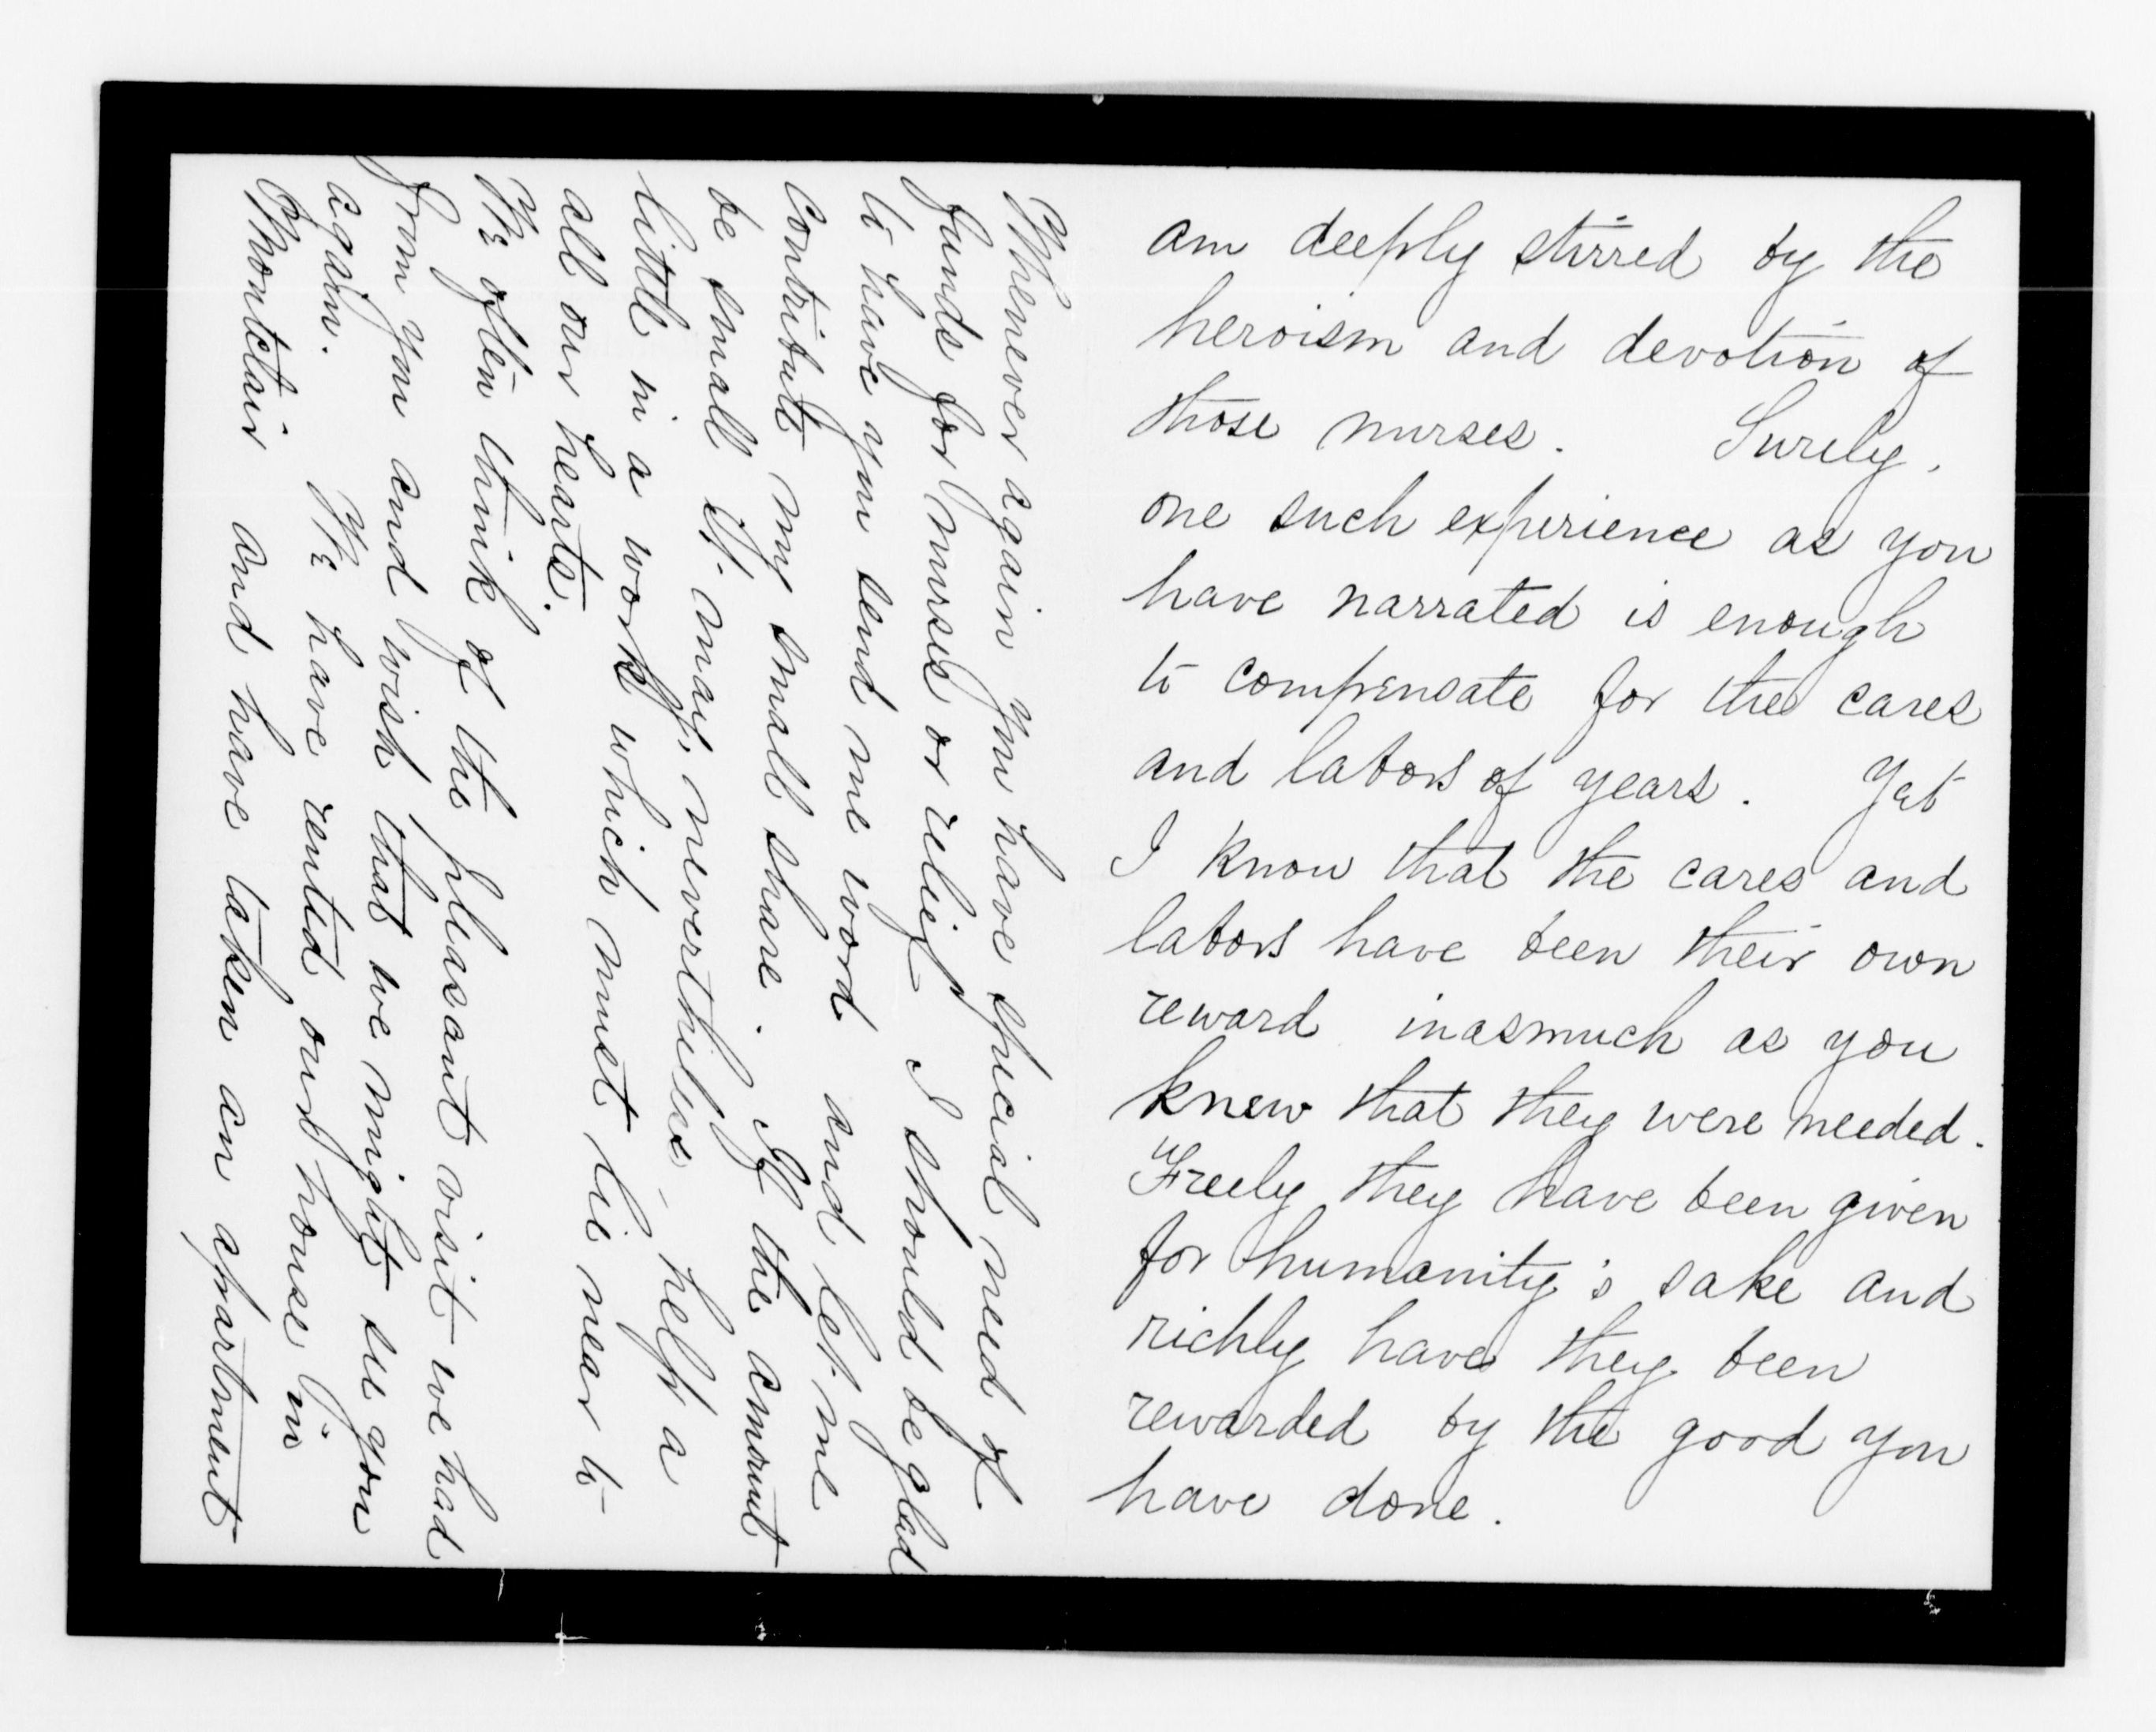 am deeply stirred by the
heroism and devotion of
those nurses. Surely,
one such experience as you
have narrated is enough
to compensate for the cares
and labors of years. Yet
I know that the cares and
labors have been their own
reward inasmuch as you
knew that they were needed.
Freely they have been given
for humanity's sake and
richly have they been
rewarded by the good you
have done.
Whenever again you have special need of
funds for nurses or relief I should be glad
to have you send me word and let me
contribute my small share. If the amount
be small it may, nevertheless, help a
little in a work which must lie near to
all our hearts.
We often think of the pleasant visit we had
from you and wish that we might see you
again. We have rented our house in
Montclair and have taken an apartment